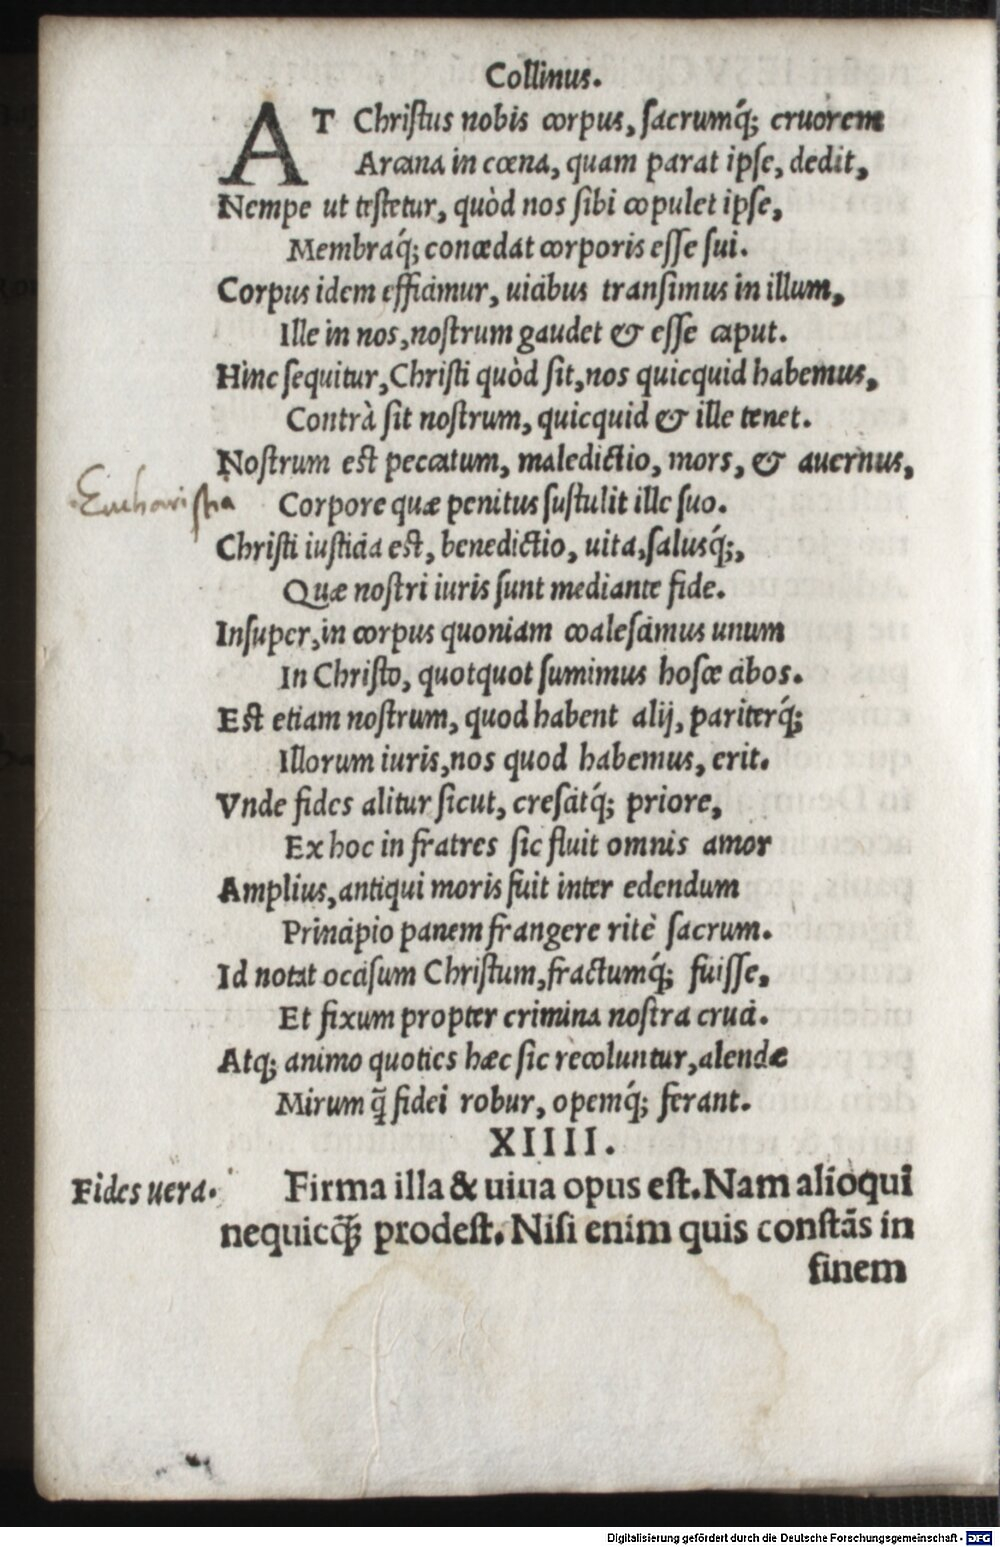 Collinus.
AT Christus nobis corpus, sacrumq́; cruorem
Arcana in cœna, quam parat ipse, dedit,
Nempe ut testetur, quòd nos sibi copulet ipse,
Membraq́; concedat corporis esse sui.
Corpus idem efficimur, uicibus transimus in illum,
Ille in nos, nostrum gaudet & esse caput.
Hinc sequitur, Christi quòd sit, nos quicquid habemus,
Contrà sit nostrum, quicquid & ille tenet.
Nostrum est peccatum, maledictio, mors, & auernus,
Eucharistia
Corpore quæ penitus sustulit ille suo.
Christi iusticia est, benedictio, uita, salusq́;,
Quæ nostri iuris sunt mediante fide.
Insuper, in corpus quoniam coalescimus unum
In Christo, quotquot sumimus hosce cibos.
Est etiam nostrum, quod habent alij, pariterq́;
Illorum iuris, nos quod habemus, erit.
Vnde fides alitur sicut, crescitq́; priore,
Ex hoc in fratres sic fluit omnis amor
Amplius, antiqui moris fuit inter edendum
Principio panem frangere ritè sacrum.
Id notat occisum Christum, fractumq́; fuisse,
Et fixum propter crimina nostra cruci.
Atq; animo quoties hæc sic recoluntur, alendæ
Mirum q̃ fidei robur, opemq́; ferant.
XIIII.
Fides uera.
Firma illa & uiua opus est. Nam alioqui
nequicq̃ꝫ prodest. Nisi enim quis constãs in
finem
Digitalisierung gefördert durch die Deutsche Forschungsgemeinschaft - DFG